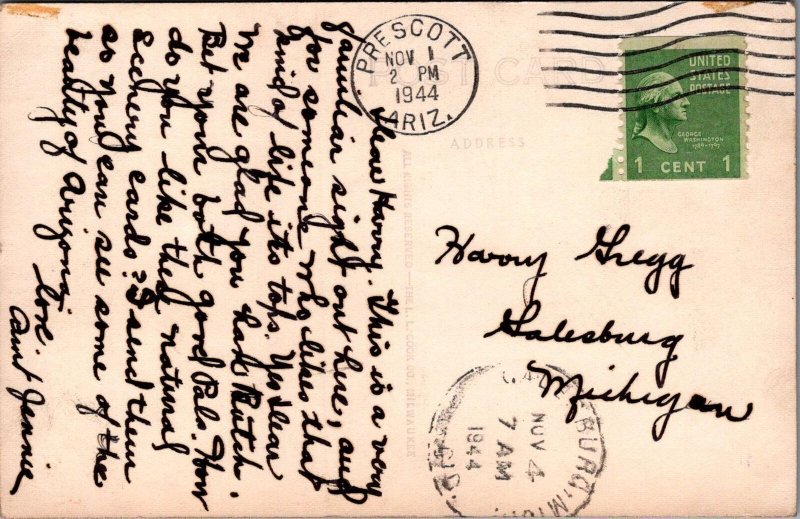 Dear Harry. This is a very
familiar sight out here, and
for someone who likes that
kind of life its tops. Yes dear
We are glad you had Butch.
But your both good Pals. How
do you like the natural
Scenery cards? I send them
so you can see some of the
beauty of Arizona.
love.
Aunt Jennie
PRESCOTT
NOV 1
2 PM
1944
ARIZ.
POST CARD
ADDRESS
UNITED
STATES
POSTAGE
GEORGE
WASHINGTON
1789-1797
1 CENT 1
Harry Gregg
Galesburg
Michigan
NOV 4
7 AM
1944
ALL RIGHTS RESERVED
CO., MILWAUKEE